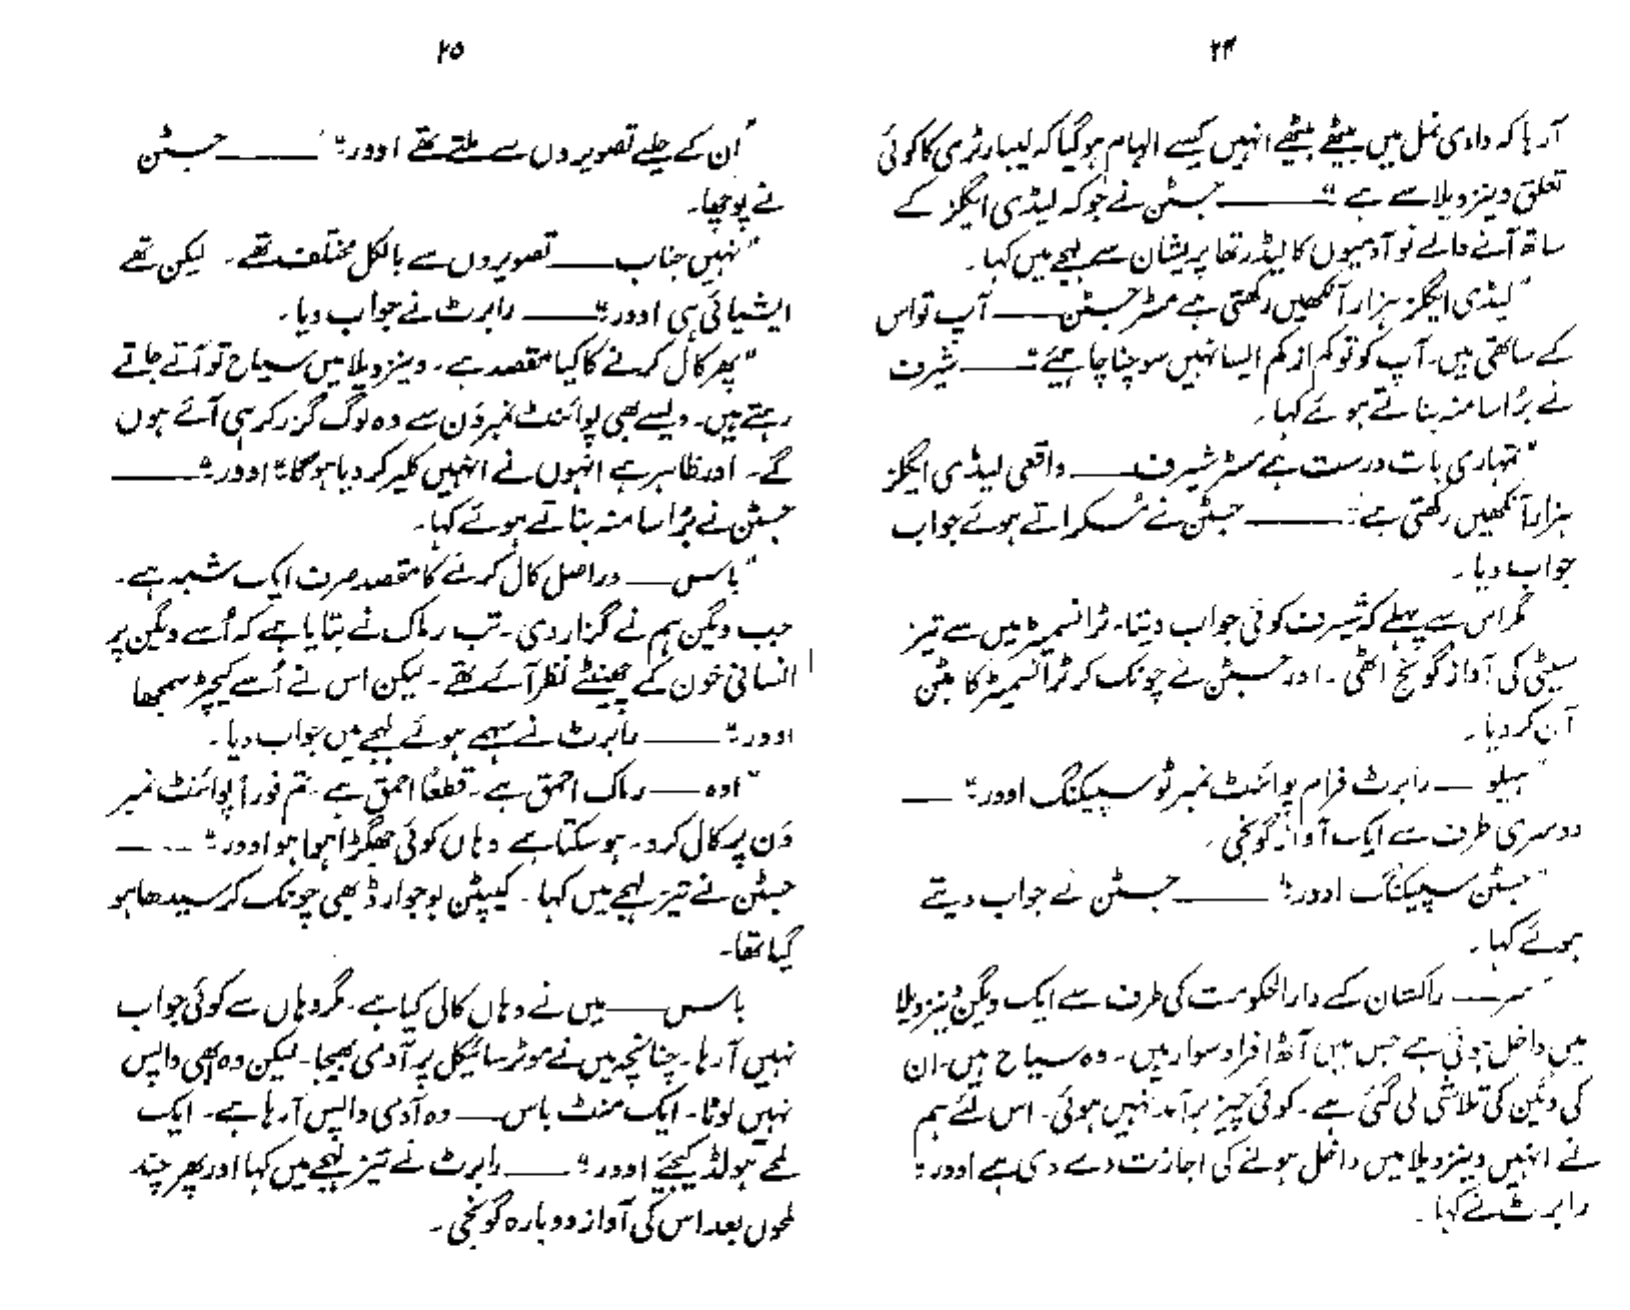 ۲۴
آ رہا کہ وادی نمل میں بیٹھے بیٹھے انہیں کیسے الہام ہو گیا کہ لیبارٹری کا کوئی
تعلق وینزویلا سے ہے "ــــــ جسٹن نے جو کہ لیڈی ایگلز کے
ساتھ آنے والے نو آدمیوں کا لیڈر تھا پریشان سے لہجے میں کہا۔
"لیڈی ایگلز ہزار آنکھیں رکھتی ہے مسٹر جسٹن ــــــ آپ تو اس
کے ساتھی ہیں۔ آپ کو تو کم از کم ایسا نہیں سوچنا چاہیئے "ــــــ شیرف
نے بُرا سا منہ بناتے ہوئے کہا۔
"تمہاری بات درست ہے مسٹر شیرف ــــــ واقعی لیڈی ایگلز
ہزار آنکھیں رکھتی ہے "ــــــ جسٹن نے مُسکراتے ہوئے جواب
جواب دیا۔
مگر اس سے پہلے کہ شیرف کوئی جواب دیتا۔ ٹرانسمیٹر میں سے تیز
سیٹی کی آواز گونج اٹھی۔ اور جسٹن نے چونک کر ٹرانسمیٹر کا بٹن
آن کر دیا۔
"ہیلو ــــــ رابرٹ فرام پوائنٹ نمبر ٹو سپیکنگ اوور" ــــــ
دوسری طرف سے ایک آواز گونجی۔
"جسٹن سپیکنگ اوور" ــــــ جسٹن نے جواب دیتے
ہوئے کہا۔
"سر ــــــ راکستان کے دارالحکومت کی طرف سے ایک ویگن وینزویلا
میں داخل ہوئی ہے جس میں آٹھ افراد سوار ہیں۔ وہ سیاح ہیں۔ ان
کی ویگن کی تلاشی لی گئی ہے۔ کوئی چیز برآمد نہیں ہوئی۔ اس لئے ہم
نے انہیں وینزویلا میں داخل ہونے کی اجازت دے دی ہے اوور"
رابرٹ نے کہا۔
۲۵
"اُن کے حلیے تصویروں سے ملتے تھے اوور" ــــــ جسٹن
نے پوچھا۔
"نہیں جناب ــــــ تصویروں سے بالکل مختلف تھے۔ لیکن تھے
ایشیائی ہی اوور" ــــــ رابرٹ نے جواب دیا۔
"پھر کال کرنے کا کیا مقصد ہے۔ وینزویلا میں سیاح تو آتے جاتے
رہتے ہیں۔ ویسے بھی پوائنٹ نمبر وَن سے وہ لوگ گزر کر ہی آئے ہوں
گے۔ اور ظاہر ہے انہوں نے انہیں کلیر کر دیا ہو گا" اوور" ــــــ
جسٹن نے بُرا سا منہ بناتے ہوئے کہا۔
"باس ــــــ دراصل کال کرنے کا مقصد صرف ایک شبہ ہے۔
جب ویگن ہم نے گزار دی۔ تب رماک نے بتایا ہے کہ اُسے ویگن پر
انسانی خون کے چھینٹے نظر آئے تھے۔ لیکن اس نے اُسے کیچڑ سمجھا
اوور" ــــــ رابرٹ نے سہمے ہوئے لہجے میں جواب دیا۔
"اوہ ــــــ رماک احمق ہے۔ قطعاً احمق ہے۔ تم فوراً پوائنٹ نمبر
وَن پر کال کرو۔ ہو سکتا ہے وہاں کوئی جھگڑا ہوا ہو اوور" ــــــ
جسٹن نے تیز لہجے میں کہا۔ کیپٹن بوجوارڈ بھی چونک کر سیدھا ہو
گیا تھا۔
باس ــــــ میں نے وہاں کال کیا ہے۔ مگر وہاں سے کوئی جواب
نہیں آ رہا۔ چنانچہ میں نے موٹر سائیکل پر آدمی بھیجا۔ لیکن وہ بھی واپس
نہیں لوٹا۔ ایک منٹ باس ــــــ وہ آدمی واپس آ رہا ہے۔ ایک
لمحے ہولڈ کیجئے اوور" ــــــ رابرٹ نے تیز لہجے میں کہا اور پھر چند
لمحوں بعد اس کی آواز دوبارہ گونجی۔